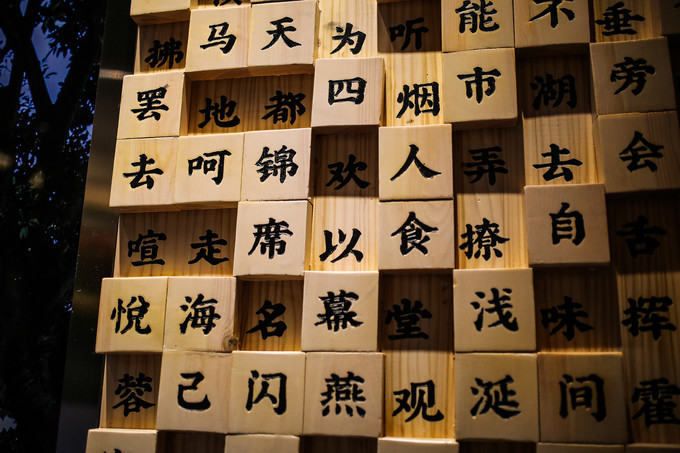 拂马天为听能不垂
罢地都四烟市湖旁
去呵锦欢人弄去会
喧走席以食撩自舌
悦海名幕堂浅味挥
蓉己闪燕观涎间霍